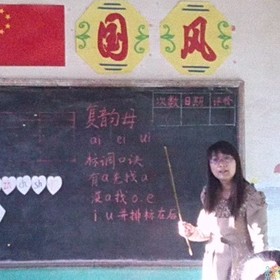 国风
复韵母
次数 日期 评价
ai ei ui
标调口诀
有a先找a
没a找o.e
i u并排标在后